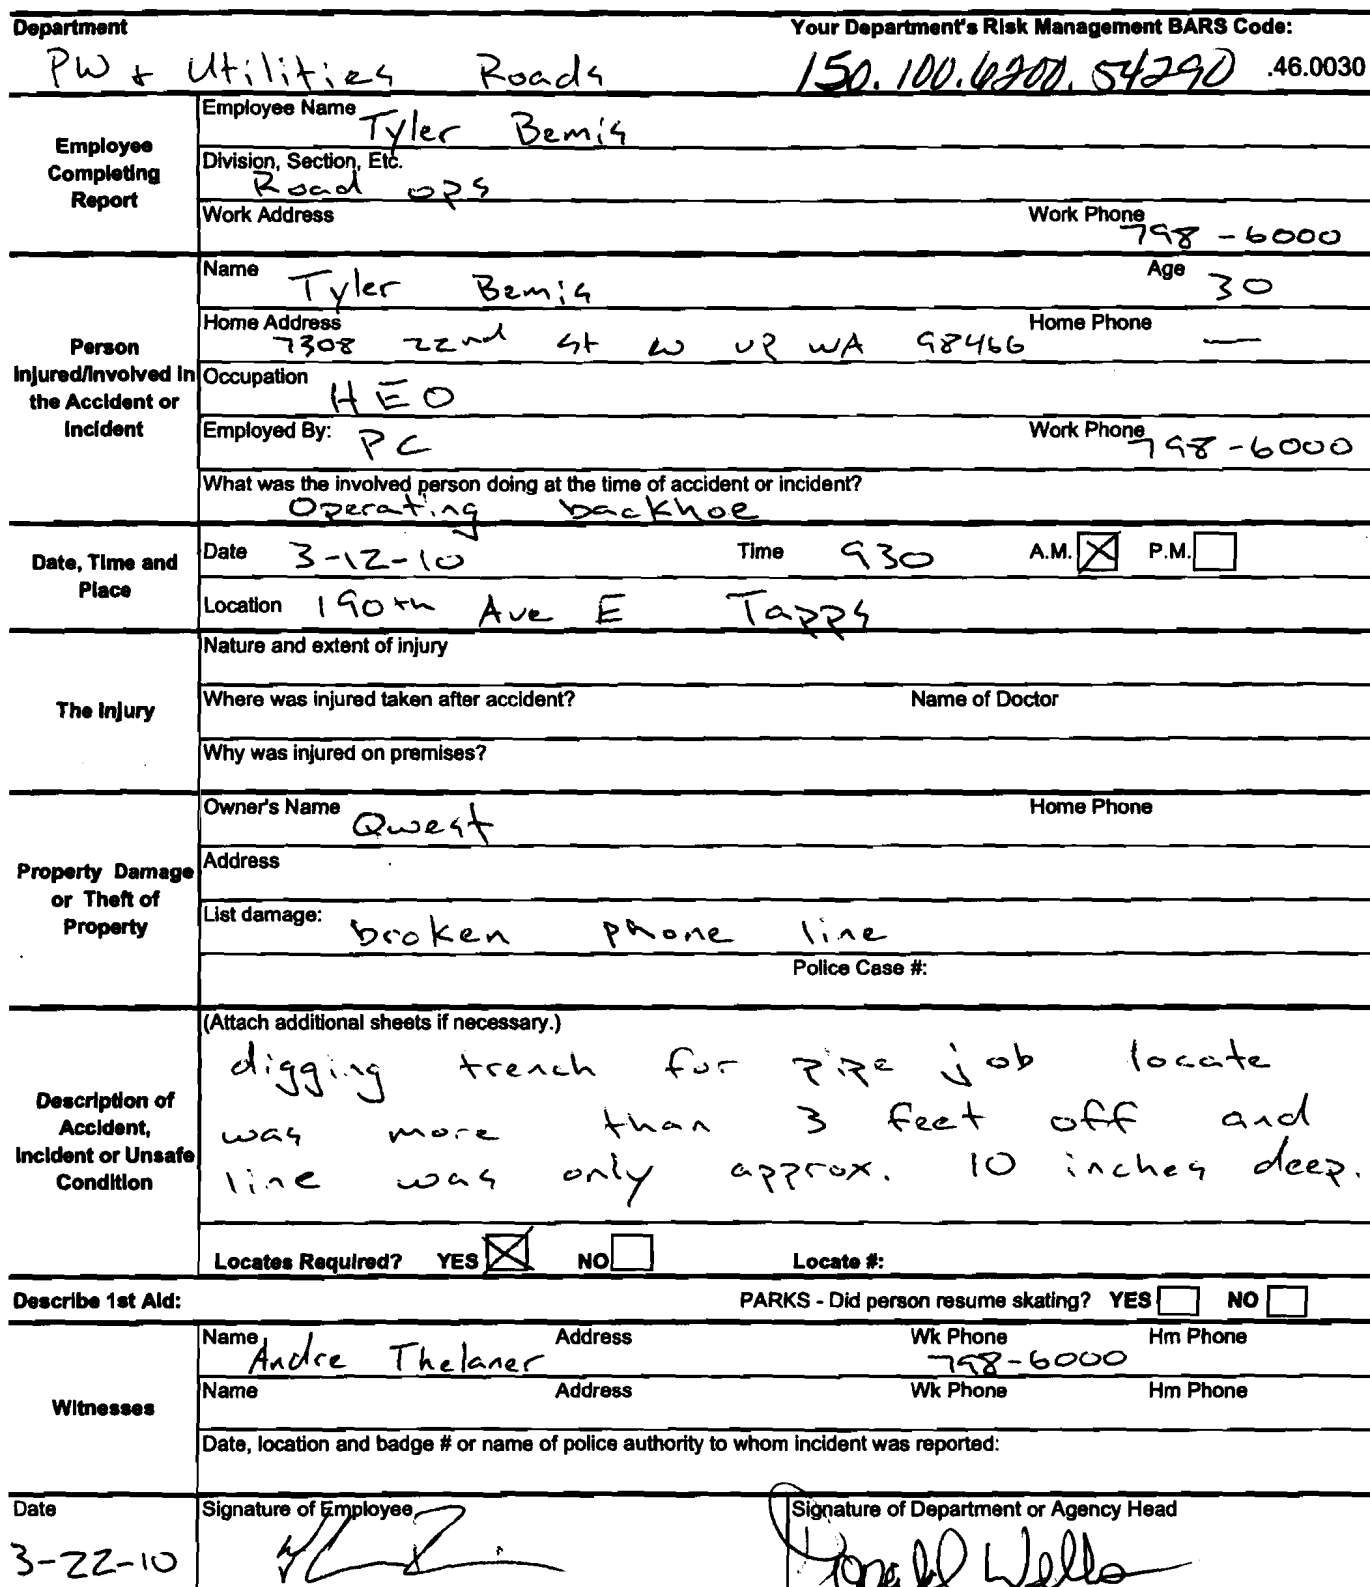 Department Your Department's Risk Management BARS Code:
PW & Utilities Roads 150.100.6200.54290 .46.0030
Employee Completing Report
Employee Name Tyler Bemis
Division, Section, Etc.
Road ops
Work Address Work Phone 798-6000
Person Injured/Involved in the Accident or Incident
Name Tyler Bemis Age 30
Home Address Home Phone
7308 22nd St W UP WA 98466 —
Occupation HEO
Employed By: PC Work Phone 798-6000
What was the involved person doing at the time of accident or incident?
Operating backhoe
Date, Time and Place
Date 3-12-10 Time 930 A.M. P.M.
Location 190th Ave E Tapps
The Injury
Nature and extent of injury
Where was injured taken after accident? Name of Doctor
Why was injured on premises?
Property Damage or Theft of Property
Owner's Name Qwest Home Phone
Address
List damage: broken phone line
Police Case #:
Description of Accident, Incident or Unsafe Condition
(Attach additional sheets if necessary.)
digging trench for pipe job locate
was more than 3 feet off and
line was only approx. 10 inches deep.
Locates Required? YES NO Locate #:
Describe 1st Aid: PARKS - Did person resume skating? YES NO
Witnesses
Name Address Wk Phone Hm Phone
Andre Thelaner 798-6000
Name Address Wk Phone Hm Phone
Date, location and badge # or name of police authority to whom incident was reported:
Date Signature of Employee Signature of Department or Agency Head
3-22-10 Donald Wells